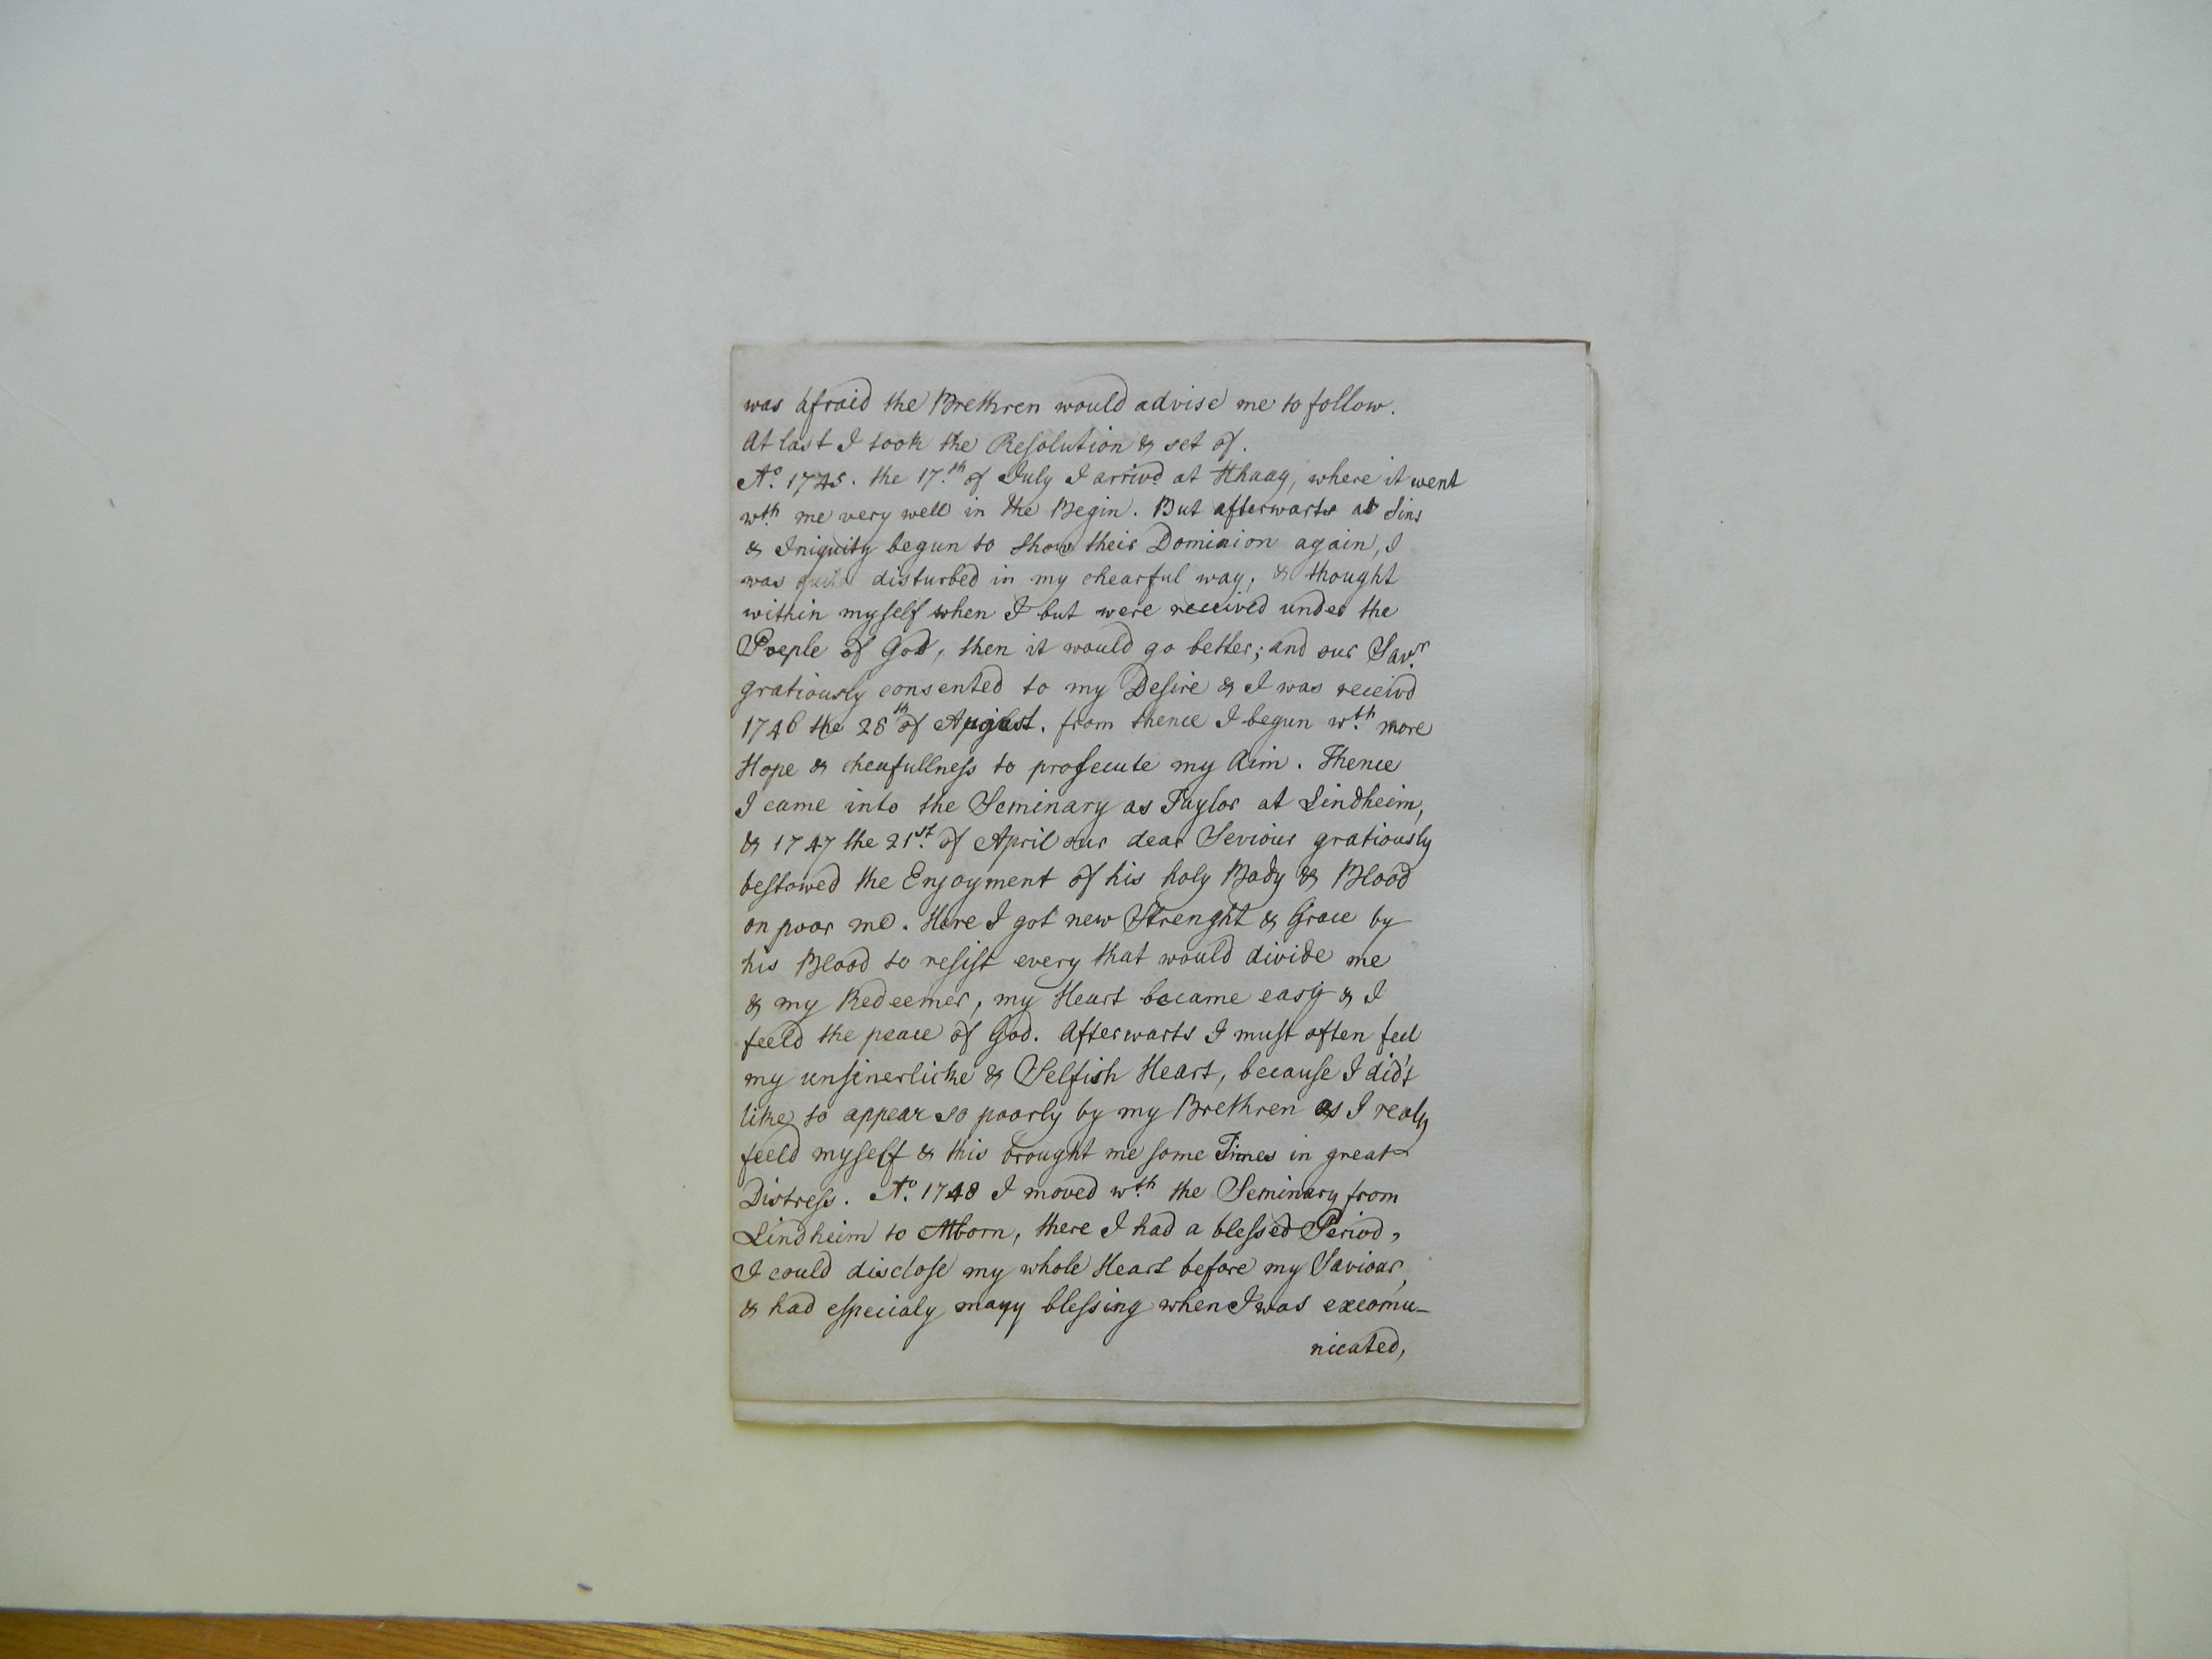 was afraid the Brethren would advise me to follow.
At last I took the Resolution & set of.
Ao. 1745. the 17.th of July I arrivd at Hhaag, where it went
wth. me very well in the Begin. But afterwarts as Sins
& Iniquity begun to show their Dominion again, I
was quite disturbed in my chearful way; & thought
within myself when I but were received under the
Poeple of God, then it would go better; and our Savr.
gratiously consented to my Desire & I was receivd
1746 the 28th of August. from thence I begun wth. more
Hope & chearfullness to prosecute my Aim. Thence
I came into the Seminary as Taylor at Lindheim,
& 1747 the 21st. of April our dear Seviour gratiously
bestowed the Enjoyment of his holy Body & Blood
on poor me. Here I got new Strenght & Grace by
his Blood to resist every that would divide me
& my Redeemer, my Heart became easy & I
feeld the peace of God. Afterwarts I must often feel
my unsinerlicke & Selfish Heart, because I did't
like to appear so poorly by my Brethren as I realy
feeld myself & this brought me some Times in great
Distress. Ao. 1748 I moved wth. the Seminary from
Lindheim to Mborn, there I had a blessed Period,
I could disclose my whole Heart before my Saviour,
& had especialy many blessing when I was excomu-
nicated,